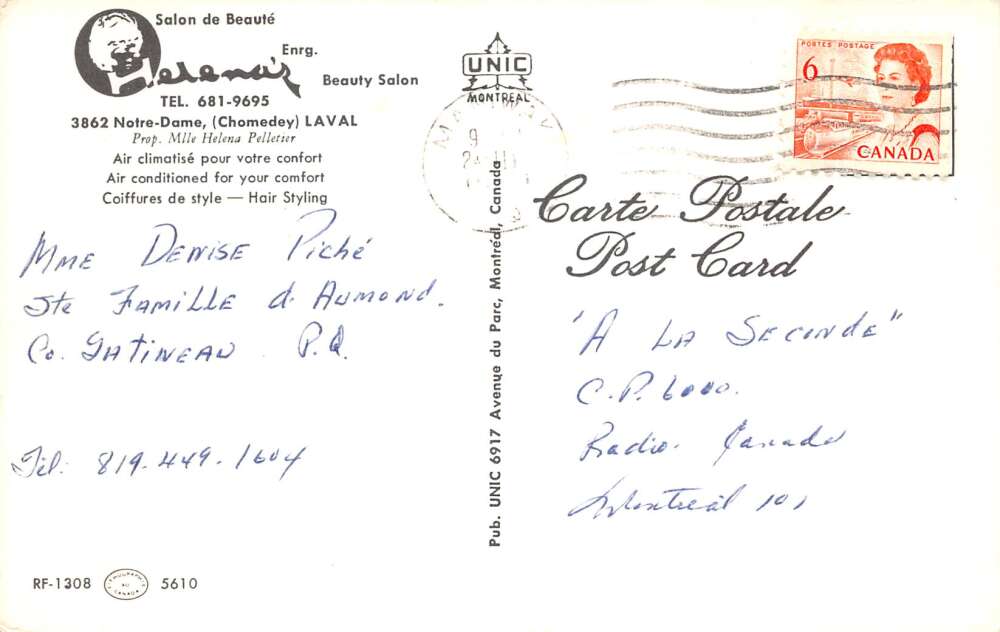 Salon de Beauté
Helena's
Enrg.
Beauty Salon
TEL. 681-9695
3862 Notre-Dame, (Chomedey) LAVAL
Prop. Mlle Helena Pelletier
Air climatisé pour votre confort
Air conditioned for your comfort
Coiffures de style — Hair Styling
MME DENISE Piché
Ste FAMILLE d. AUMOND.
Co. GATINEAU P.Q.
Tél: 819-449-1604
RF-1308
LITHOGRAPHIÉ AU CANADA
5610
UNIC
MONTREAL
Pub. UNIC 6917 Avenue du Parc, Montréal, Canada
POSTES POSTAGE
6
CANADA
Carte Postale
Post Card
"A LA SECONDE"
C.P. 6000.
Radio-Canada
Montréal 101